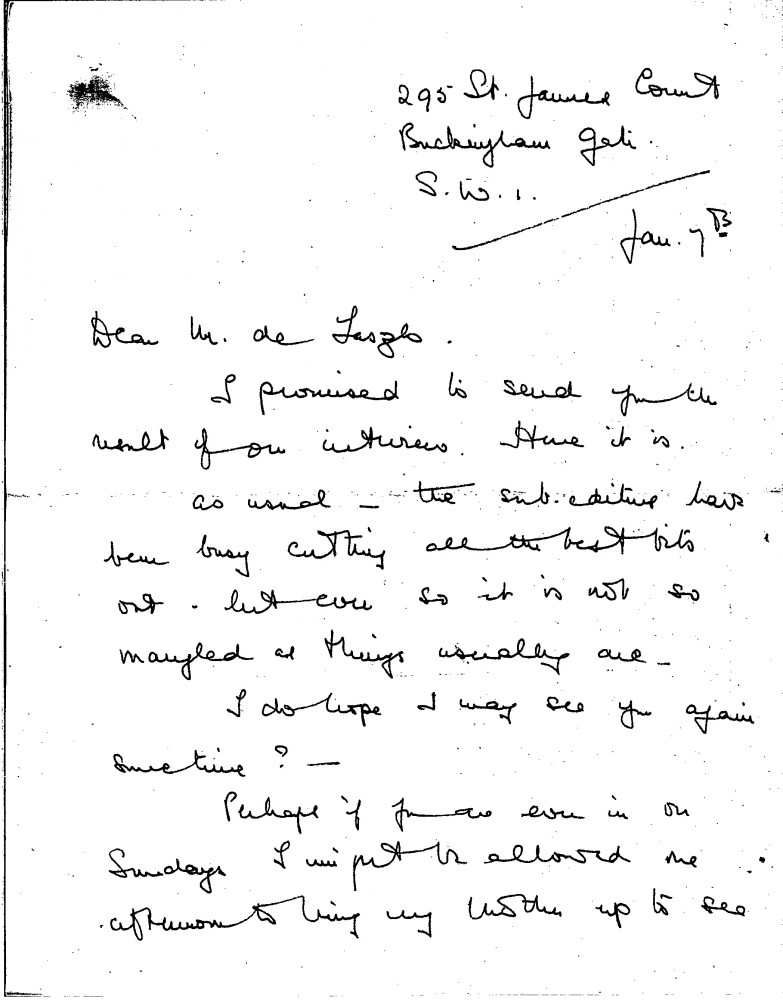 295 St. James Court
Buckingham Gate.
S.W.1.
Jan. 7th
Dear Mr. de Laszlo.
I promised to send you the
result of our interview. Here it is.
as usual – the sub-editing have
been busy cutting all the best bits
out - but even so it is not so
mangled as things usually are –
I do hope I may see you again
sometime? –
Perhaps if you are ever in on
Sundays I might be allowed one
afternoon to bring my mother up to see